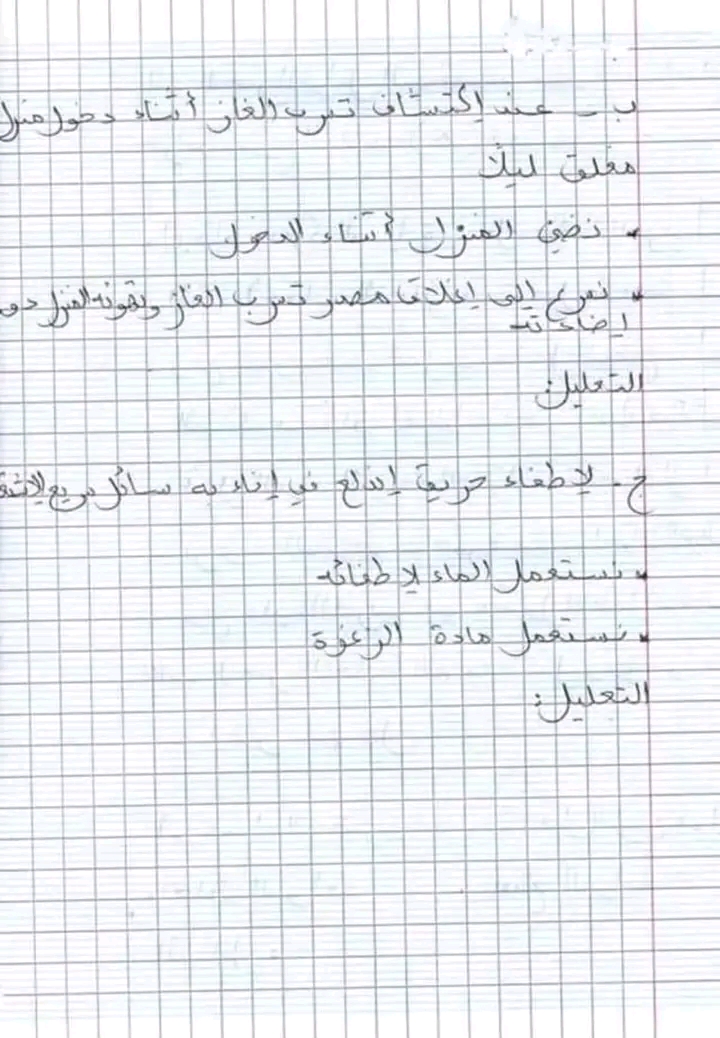 ب - عند إكتشاف تسرب الغاز أثناء دخول منزل
مغلق ليلاً
• نضئ المنزل أثناء الدخول
• نسرع إلى إغلاق مصدر تسرب الغاز وتهوئة المنزل دو
إضاءته
التعليل:
ج - لإطفاء حريق إندلع في إناء به سائل سريع الإشتع
• نستعمل الماء لإطفائه
• نستعمل مادة الرغوة
التعليل: